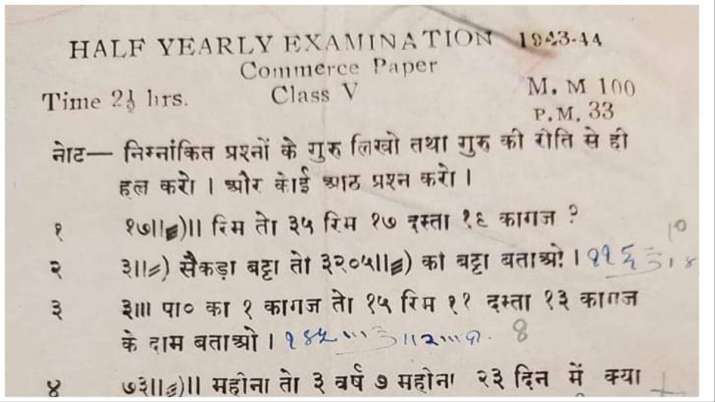 HALF YEARLY EXAMINATION 1943-44
Commerce Paper
Time 2½ hrs. Class V M. M 100
P.M. 33
नोट— निम्नांकित प्रश्नों के गुरु लिखो तथा गुरु की रीति से ही
हल करो । और कोई आठ प्रश्न करो ।
१ १७॥≡)॥ रिम तो ३५ रिम १७ दस्ता १६ कागज ?
२ ३॥=) सैकड़ा बट्टा तो ३२०५॥≡) का बट्टा बताओ ।
३ ३॥। पा० का १ कागज तो १५ रिम ११ दस्ता १३ कागज
के दाम बताओ । 8
४ ७३॥≡)॥ महीना तो ३ वर्ष ७ महीना २३ दिन में क्या